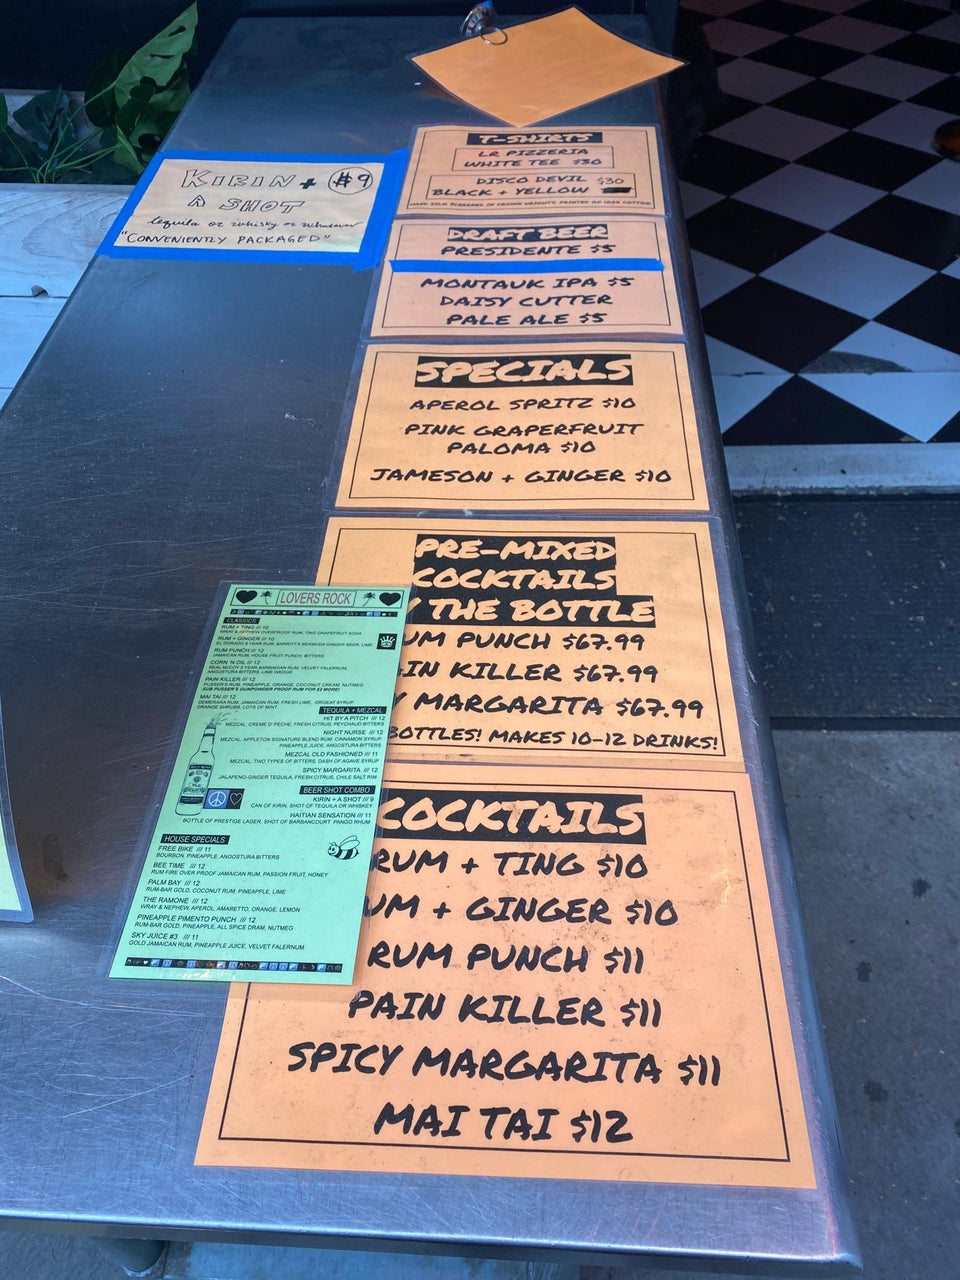 KIRIN + #9
A SHOT
tequila or whisky or whatever
"CONVENIENTLY PACKAGED"
T-SHIRTS
LR PIZZERIA
WHITE TEE $30
DISCO DEVIL $30
BLACK + YELLOW
DRAFT BEER
PRESIDENTE $5
MONTAUK IPA $5
DAISY CUTTER
PALE ALE $5
SPECIALS
APEROL SPRITZ $10
PINK GRAPERFRUIT
PALOMA $10
JAMESON + GINGER $10
PRE-MIXED
COCKTAILS
Y THE BOTTLE
UM PUNCH $67.99
IN KILLER $67.99
Y MARGARITA $67.99
BOTTLES! MAKES 10-12 DRINKS!
LOVERS ROCK
CLASSICS
RUM + TING /// 10
WRAY & NEPHEW OVERPROOF RUM, TING GRAPEFRUIT SODA
RUM + GINGER /// 10
EL DORADO 5 YEAR RUM, BARRITT'S BERMUDA GINGER BEER, LIME
RUM PUNCH /// 12
JAMAICAN RUM, HOUSE FRUIT PUNCH, BITTERS
CORN 'N OIL /// 12
REAL MCCOY 5 YEAR BARBADIAN RUM, VELVET FALERNUM,
ANGOSTURA BITTERS, LIME WEDGE
PAIN KILLER /// 12
PUSSER'S RUM, PINEAPPLE, ORANGE, COCONUT CREAM, NUTMEG,
SUB PUSSER'S GUNPOWDER PROOF RUM FOR $2 MORE!
MAI TAI /// 12
DEMERARA RUM, JAMAICAN RUM, FRESH LIME, ORGEAT SYRUP
ORANGE SHRUBB, LOTS OF MINT
TEQUILA + MEZCAL
HIT BY A PITCH /// 12
MEZCAL, CREME D' PECHE, FRESH CITRUS, PEYCHAUD BITTERS
NIGHT NURSE /// 12
MEZCAL, APPLETON SIGNATURE BLEND RUM, CINNAMON SYRUP,
PINEAPPLE JUICE, ANGOSTURA BITTERS
MEZCAL OLD FASHIONED /// 11
MEZCAL, TWO TYPES OF BITTERS, DASH OF AGAVE SYRUP
SPICY MARGARITA /// 12
JALAPENO-GINGER TEQUILA, FRESH CITRUS, CHILE SALT RIM
BEER SHOT COMBO
KIRIN + A SHOT /// 9
CAN OF KIRIN, SHOT OF TEQUILA OR WHISKEY
HAITIAN SENSATION /// 11
BOTTLE OF PRESTIGE LAGER, SHOT OF BARBANCOURT PANGO RHUM
HOUSE SPECIALS
FREE BIKE /// 11
BOURBON, PINEAPPLE, ANGOSTURA BITTERS
BEE TIME /// 12
RUM FIRE OVER PROOF JAMAICAN RUM, PASSION FRUIT, HONEY
PALM BAY /// 12
RUM-BAR GOLD, COCONUT RUM, PINEAPPLE, LIME
THE RAMONE /// 12
WRAY & NEPHEW, APEROL, AMARETTO, ORANGE, LEMON
PINEAPPLE PIMENTO PUNCH /// 12
RUM-BAR GOLD, PINEAPPLE, ALL SPICE DRAM, NUTMEG
SKY JUICE #3 /// 11
GOLD JAMAICAN RUM, PINEAPPLE JUICE, VELVET FALERNUM
COCKTAILS
RUM + TING $10
UM + GINGER $10
RUM PUNCH $11
PAIN KILLER $11
SPICY MARGARITA $11
MAI TAI $12